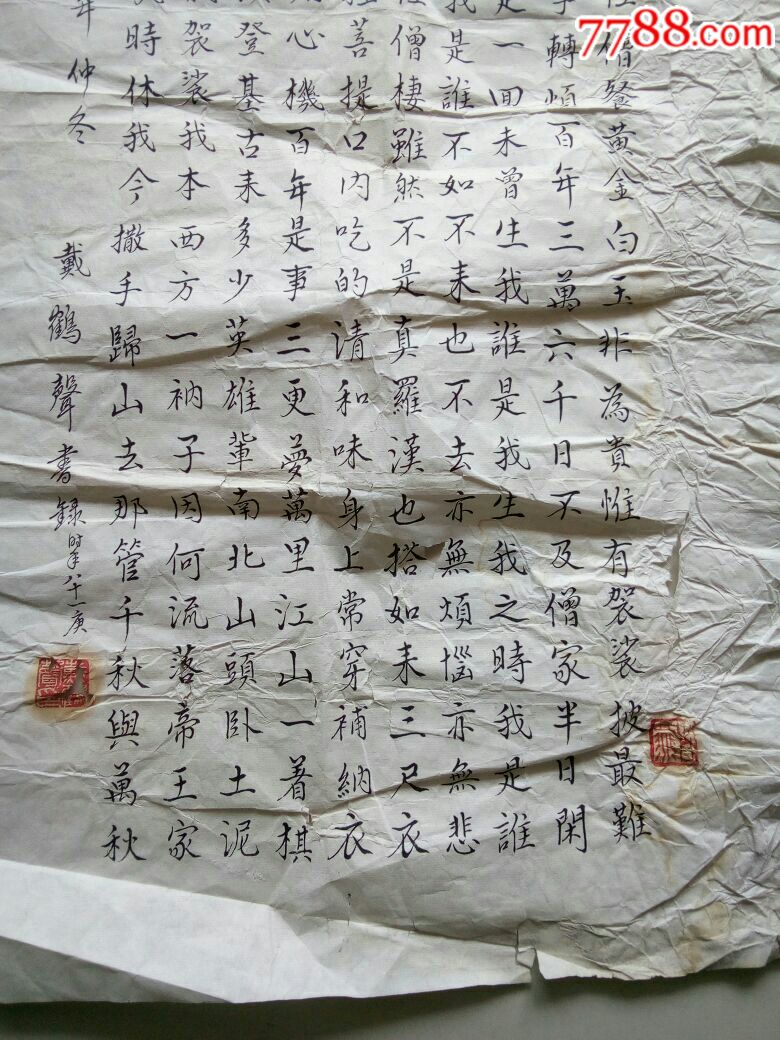 7788.com
僧餐黃金白玉非為貴惟有袈裟披最難
轉煩百年三萬六千日不及僧家半日閑
一回未曾生我誰是我生我之時我是誰
我是誰不如不來也不去亦無煩惱亦無悲
僧棲雖然不是真羅漢也搭如來三尺衣
菩提口内吃的清和味身上常穿補納衣
心機百年是事三更夢萬里江山一着棋
登基古來多少英雄輩南北山頭卧土泥
袈裟我本西方一衲子因何流落帝王家
時休我今撒手歸山去那管千秋與萬秋
年仲冬
戴鶴聲書錄時年八十一庚